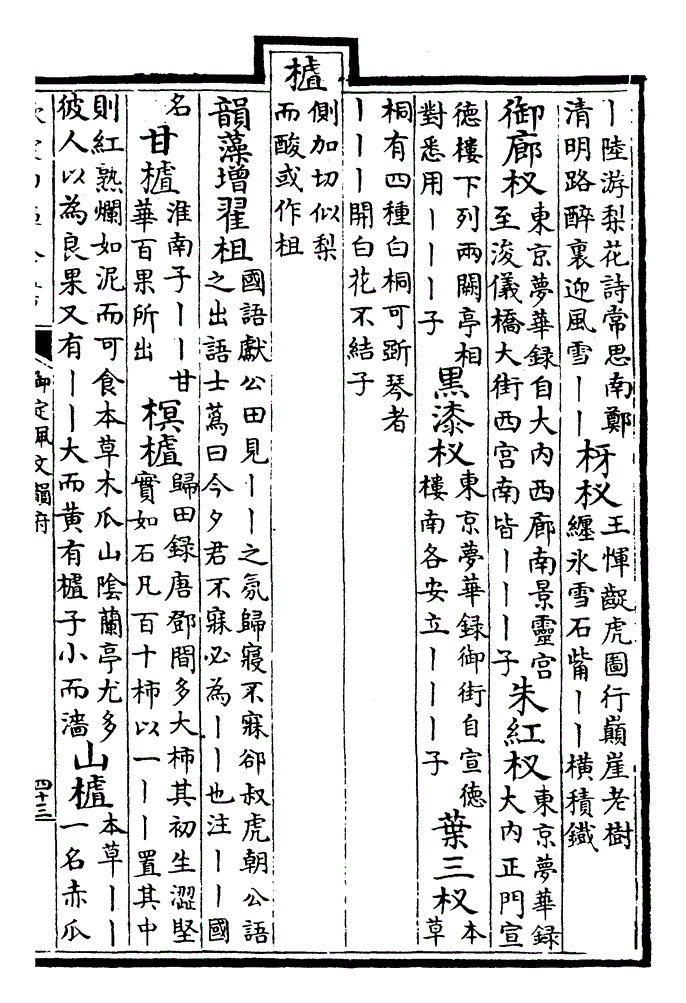 丨陸游梨花詩常思南鄭
清明路醉裏迎風雪丨丨
枒杈
王惲齪虎圖行巔崖老樹
纏氷雪石觜丨丨橫積鐵
御廊杈
東京夢華録自大内西廊南景靈宮
至浚儀橋大街西宮南皆丨丨丨子
朱紅杈
東京夢華録
大内正門宣
德樓下列兩闕亭相
對悉用丨丨丨子
黒漆杈
東京夢華録御街自宣德
樓南各安立丨丨丨子
葉三杈
本
草
桐有四種白桐可斲琴者
丨丨丨開白花不結子
樝
側加切似梨
而酸或作柤
韻藻增翟柤
國語獻公田見丨丨之氛歸寝不寐郤叔虎朝公語
之出語士蔿曰今夕君不寐必為丨丨也注丨丨國
名
甘樝
淮南子丨丨甘
華百果所出
榠樝
歸田録唐鄧間多大柿其初生澀堅
實如石凡百十柿以一丨丨置其中
則紅熟爛如泥而可食本草木瓜山陰蘭亭尤多
彼人以為良果又有丨丨大而黄有樝子小而濇
山樝
本草丨丨
一名赤瓜
御定佩文韻府
四十三